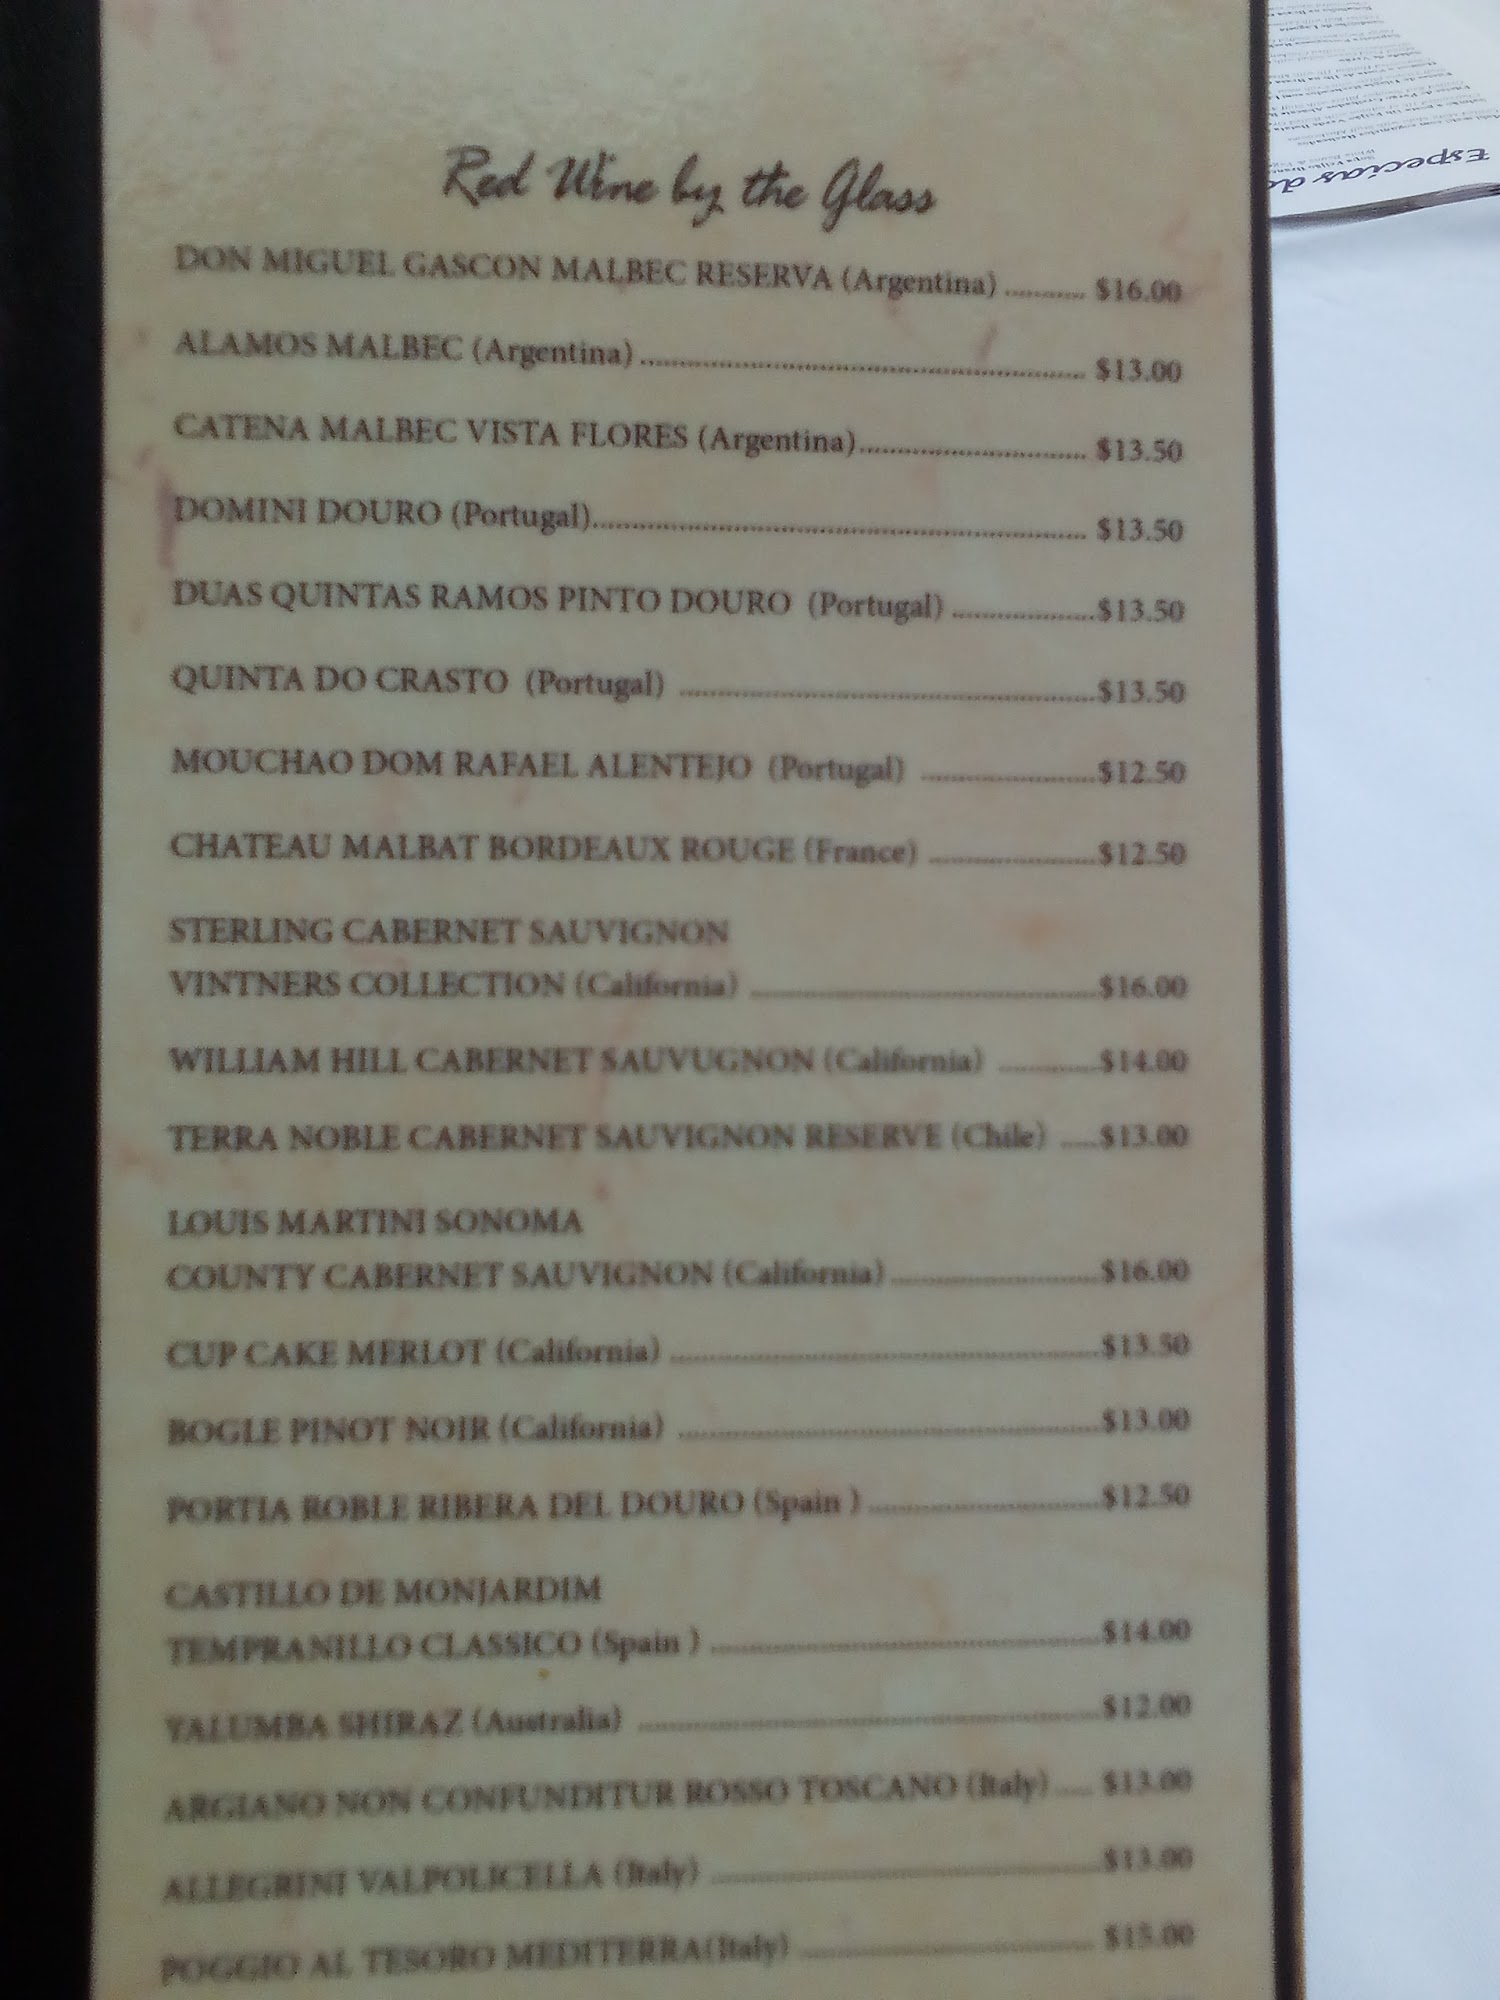 Red Wine by the Glass
DON MIGUEL GASCON MALBEC RESERVA (Argentina) ........... $16.00
ALAMOS MALBEC (Argentina) ............ $13.00
CATENA MALBEC VISTA FLORES (Argentina) ............ $13.50
DOMINI DOURO (Portugal) ............ $13.50
DUAS QUINTAS RAMOS PINTO DOURO (Portugal) ............ $13.50
QUINTA DO CRASTO (Portugal) ............ $13.50
MOUCHAO DOM RAFAEL ALENTEJO (Portugal) ............ $12.50
CHATEAU MALBAT BORDEAUX ROUGE (France) ............ $12.50
STERLING CABERNET SAUVIGNON
VINTNERS COLLECTION (California) ............ $16.00
WILLIAM HILL CABERNET SAUVUGNON (California) ............ $14.00
TERRA NOBLE CABERNET SAUVIGNON RESERVE (Chile) ..... $13.00
LOUIS MARTINI SONOMA
COUNTY CABERNET SAUVIGNON (California) ............ $16.00
CUP CAKE MERLOT (California) ............ $13.50
BOGLE PINOT NOIR (California) ............ $13.00
PORTIA ROBLE RIBERA DEL DOURO (Spain ) ............ $12.50
CASTILLO DE MONJARDIM
TEMPRANILLO CLASSICO (Spain ) ............ $14.00
YALUMBA SHIRAZ (Australia) ............ $12.00
ARGIANO NON CONFUNDITUR ROSSO TOSCANO (Italy) ..... $13.00
ALLEGRINI VALPOLICELLA (Italy) ............ $13.00
POGGIO AL TESORO MEDITERRA(Italy) ............ $15.00
Especias da